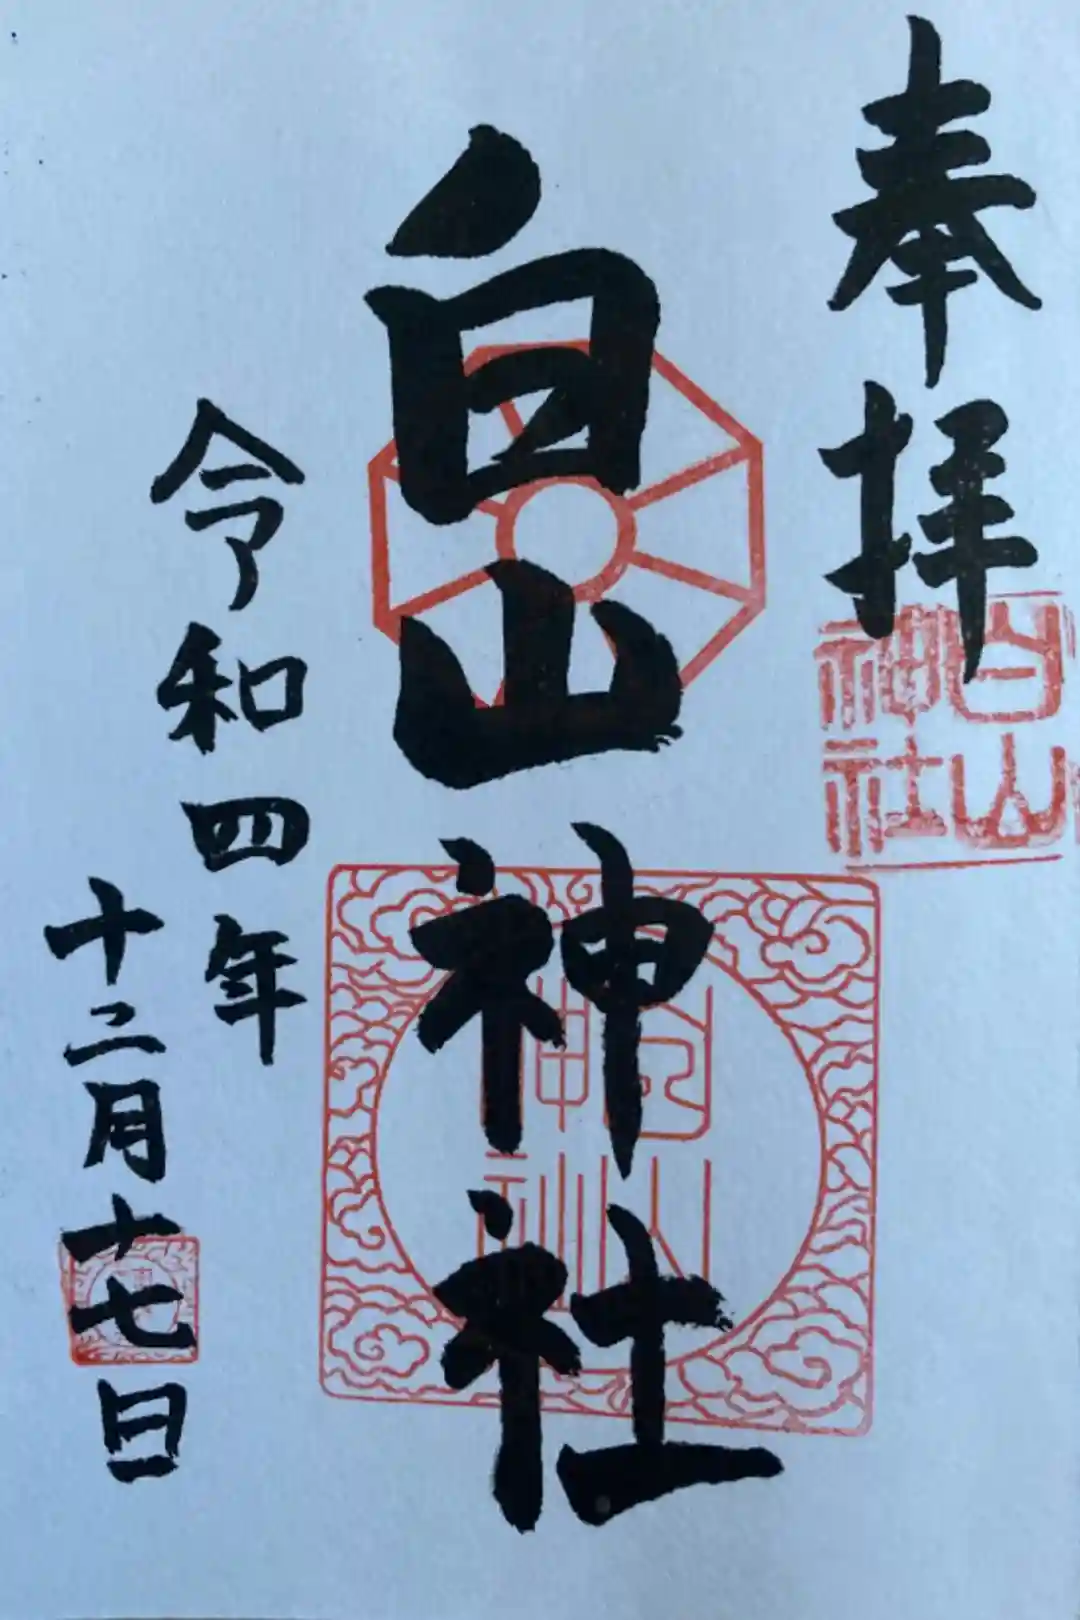 奉拝
白山
神社
白山神社
令和四年
十二月十七日